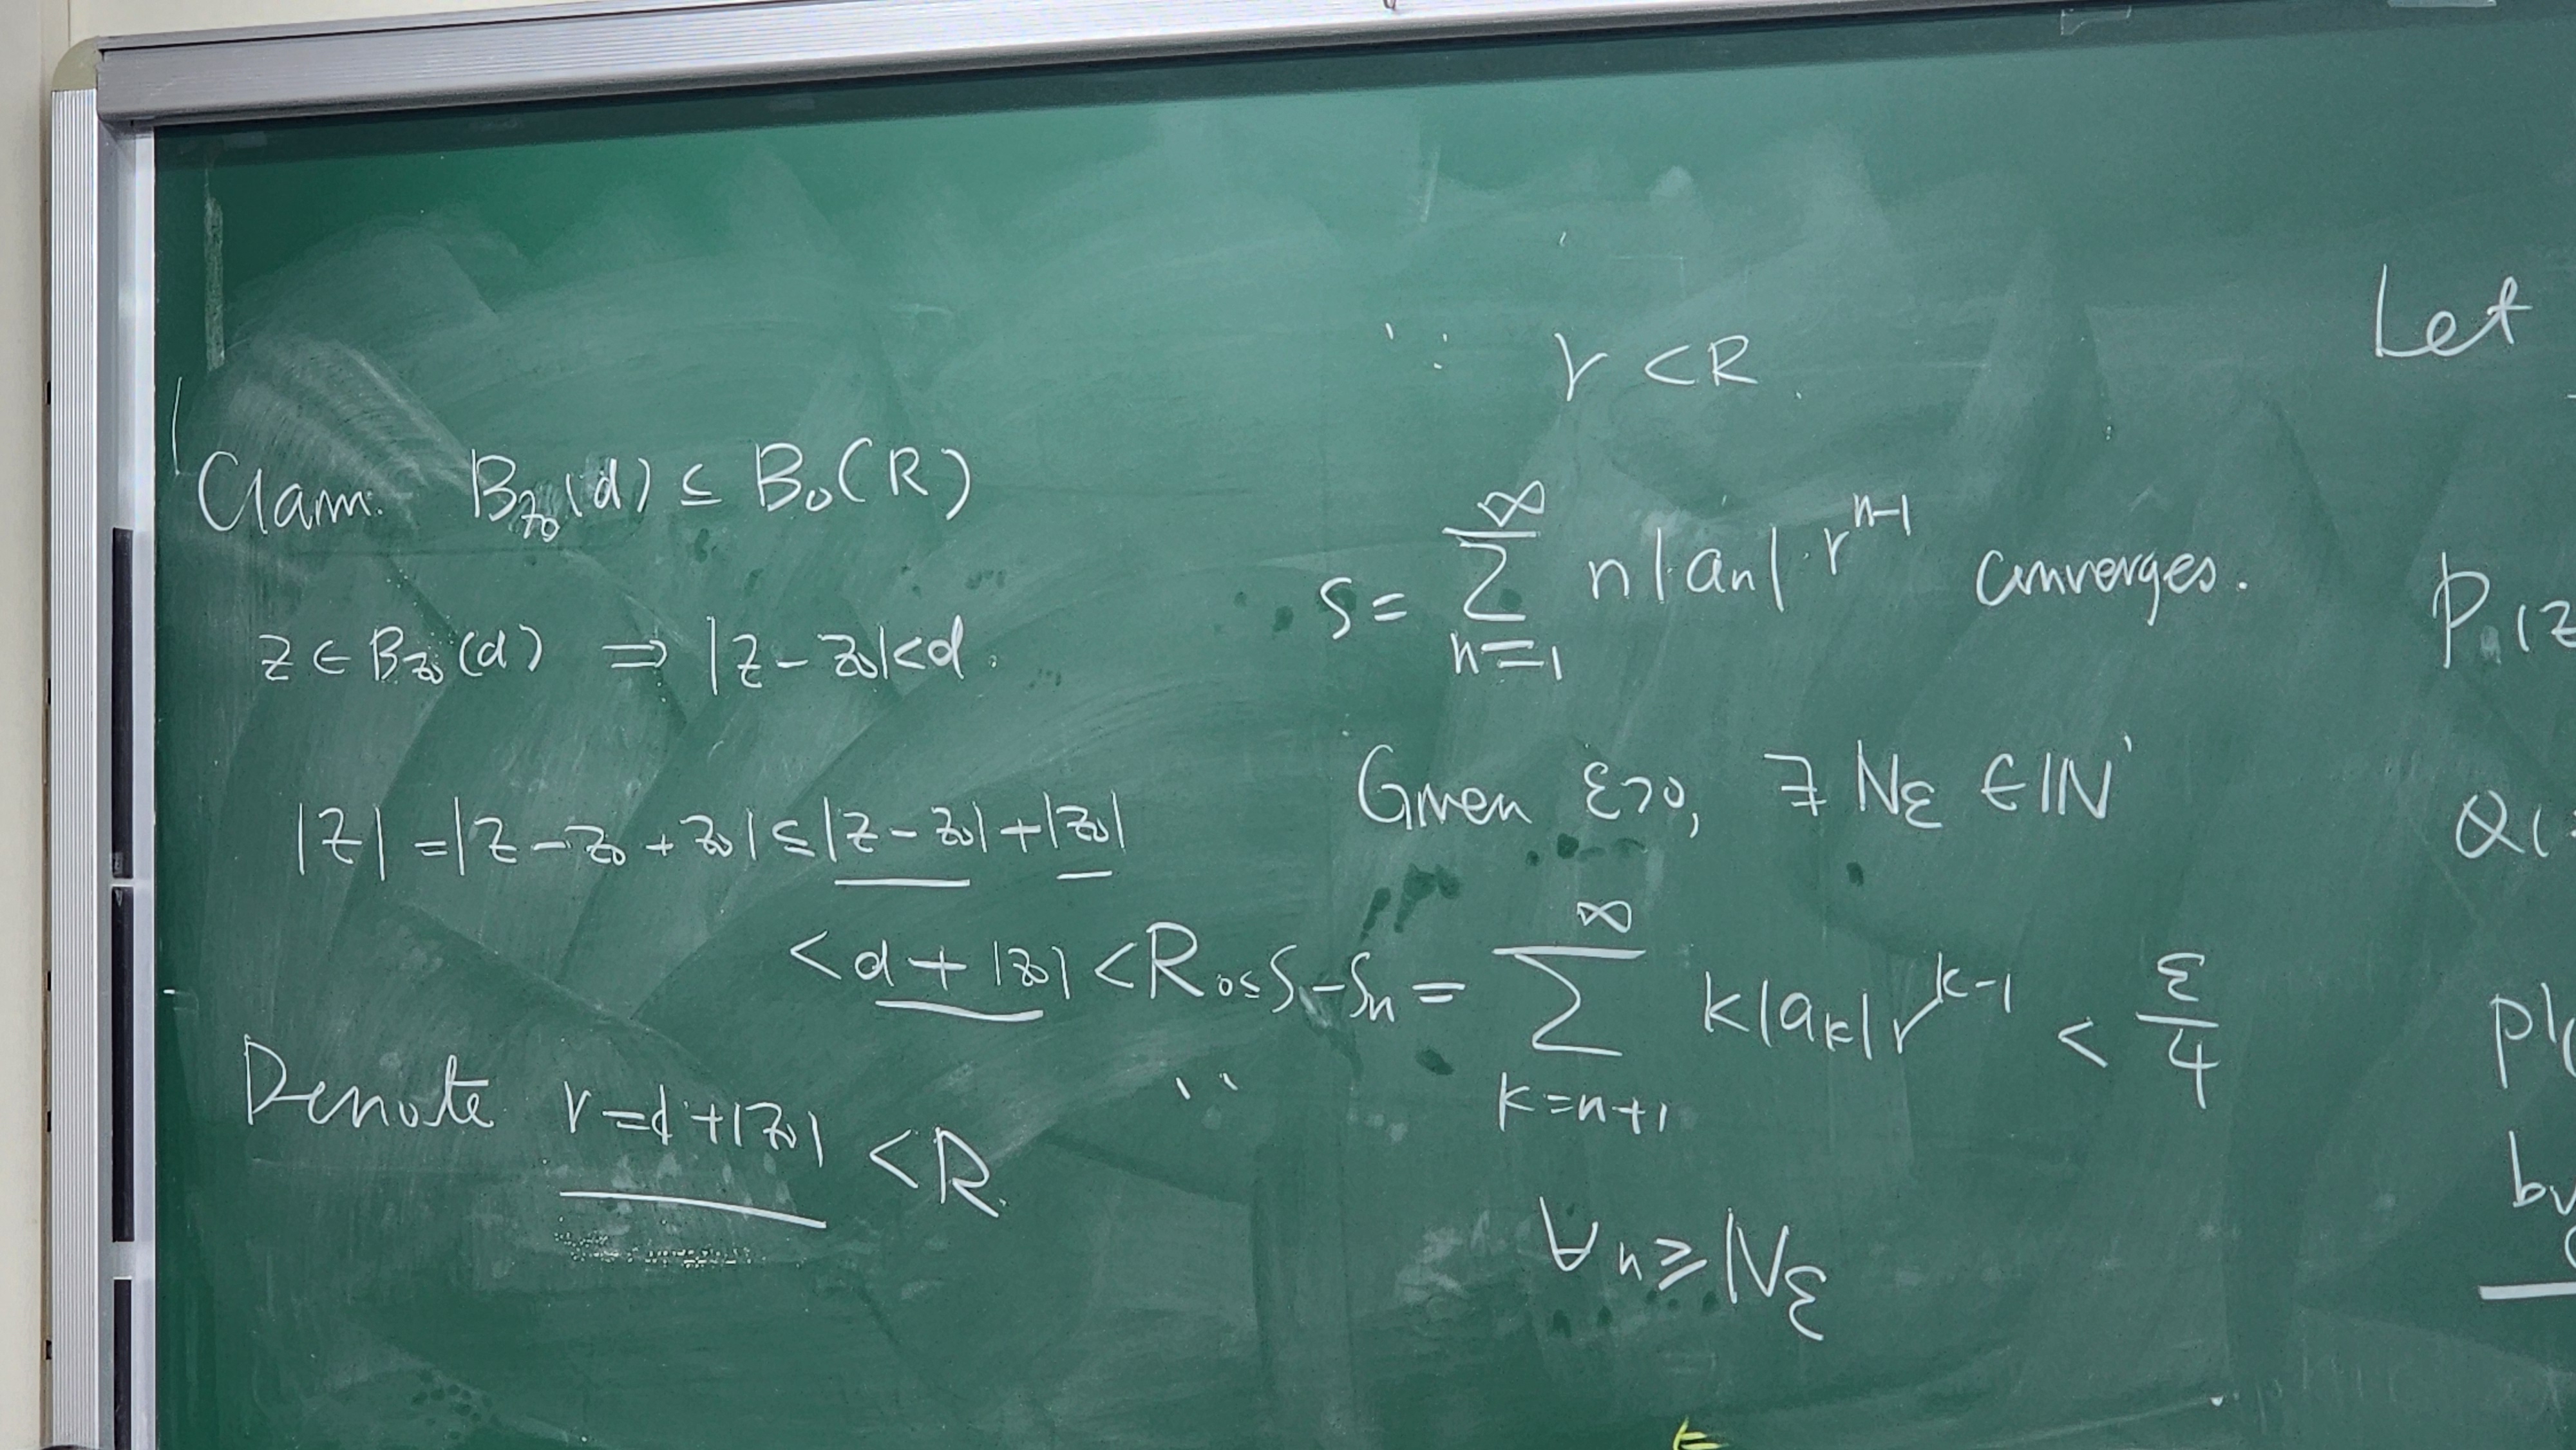 Claim: B_{z₀}(d) ⊆ B₀(R)
z ∈ B_{z₀}(d) ⇒ |z - z₀| < d.
|z| = |z - z₀ + z₀| ≤ |z - z₀| + |z₀|
< d + |z₀| < R
Denote r = d + |z₀| < R.
∵ r < R.
S = ∑_{n=1}^{∞} n|aₙ| r^{n-1} converges.
Given ε>0, ∃ N_ε ∈ ℕ
0 ≤ S - Sₙ = ∑_{k=n+1}^{∞} k|a_k| r^{k-1} < ε/4
∀ n ≥ N_ε
Let
Q(